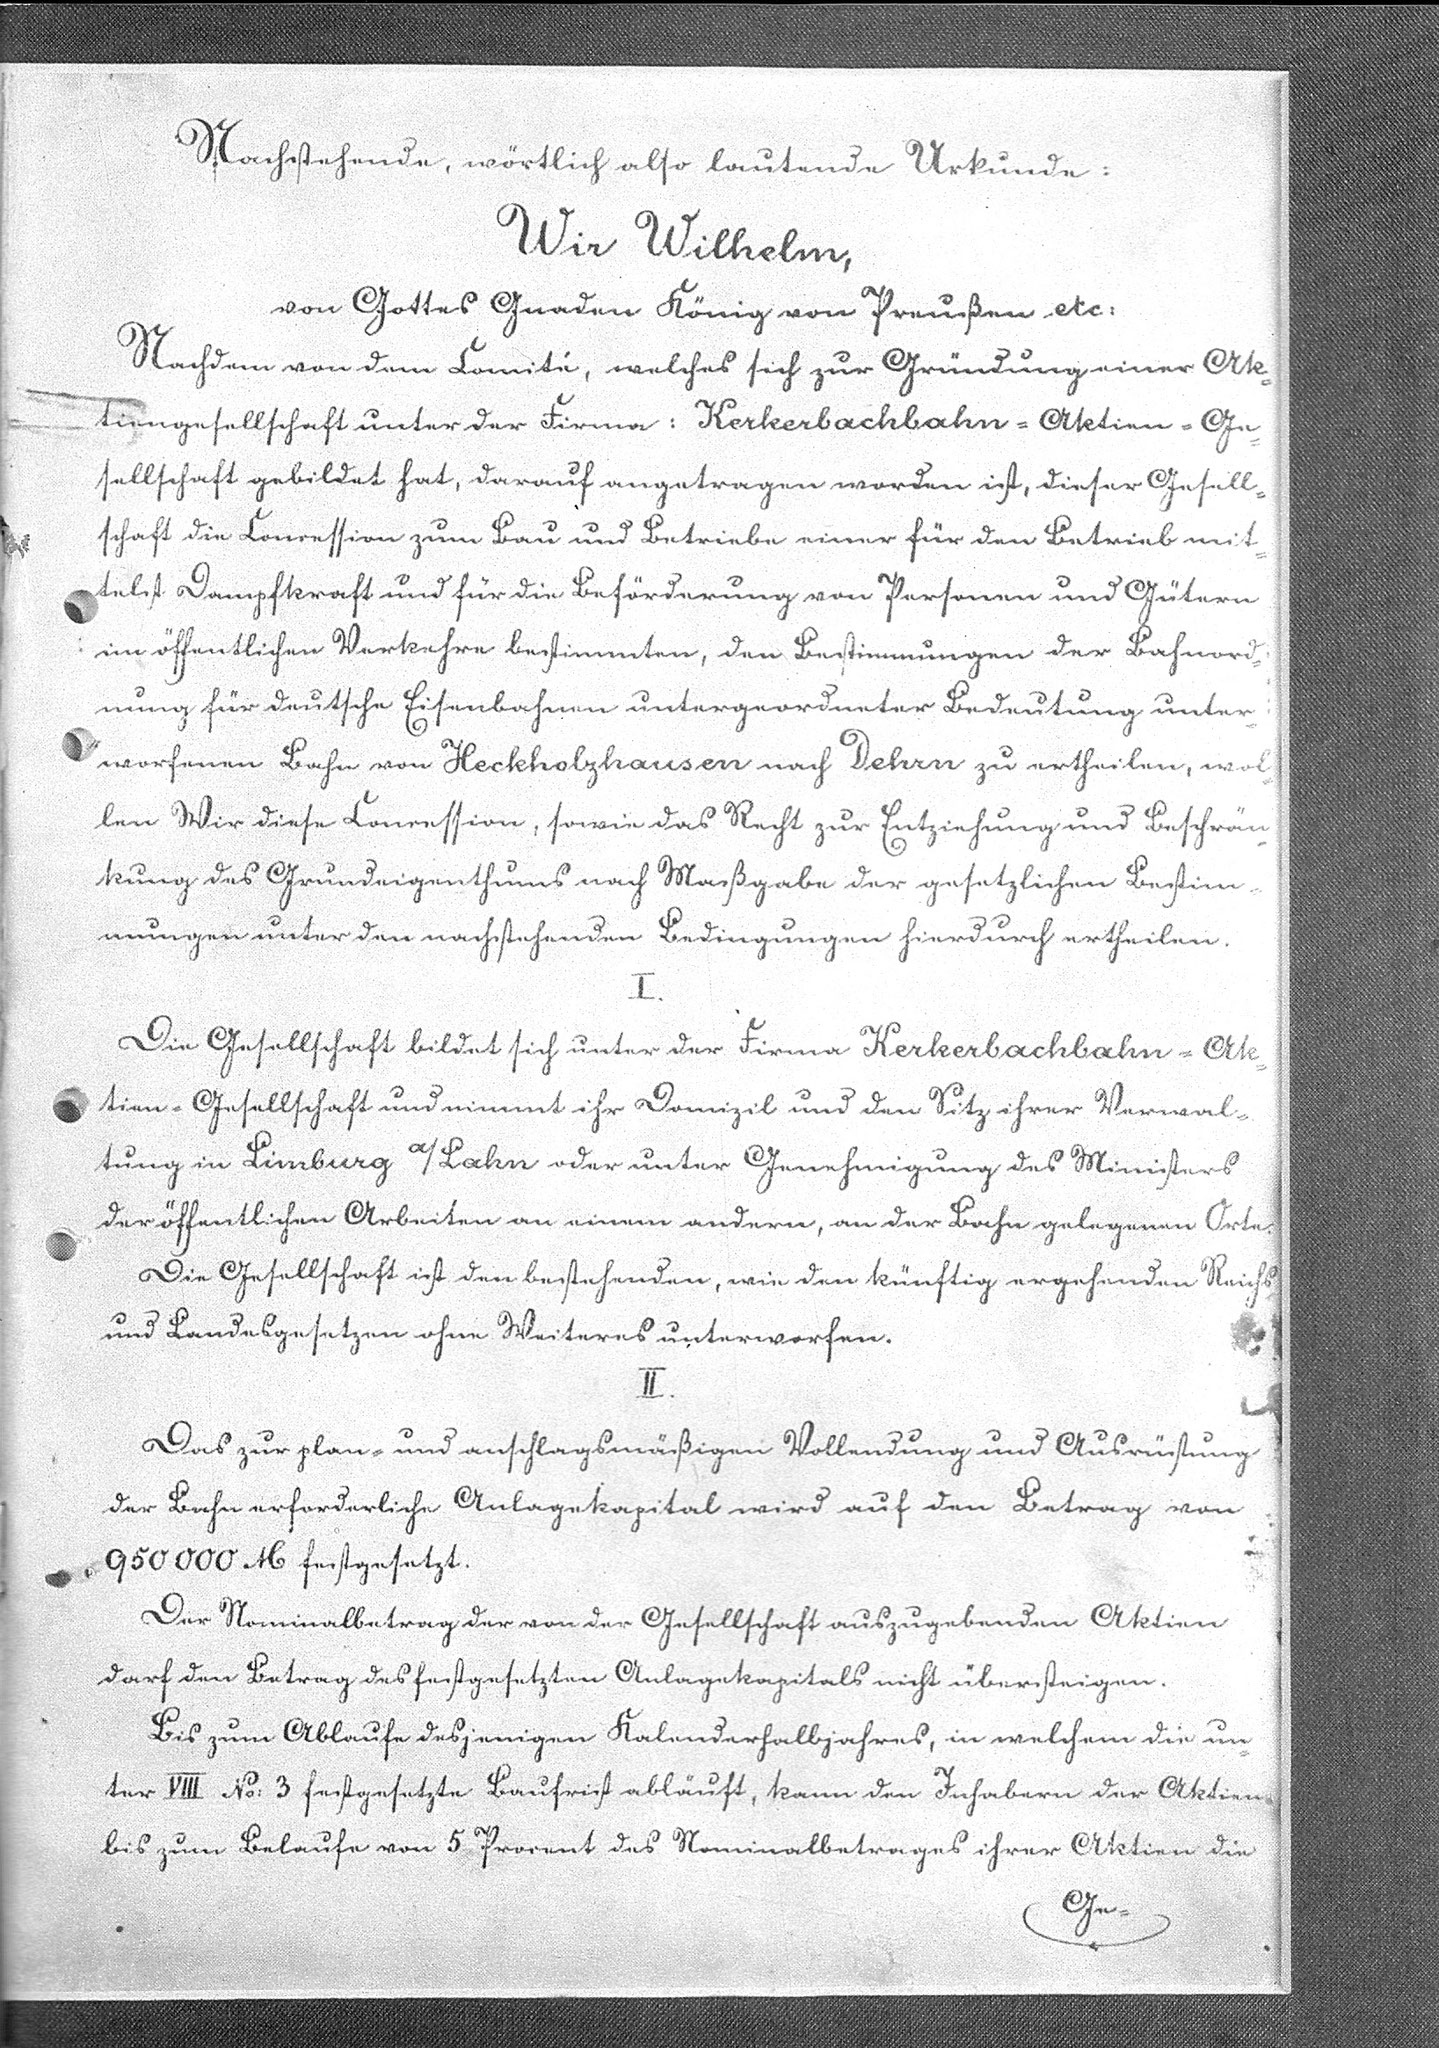 Nachstehende, wörtlich also lautende Urkunde:
Wir Wilhelm,
von Gottes Gnaden König von Preußen etc:
Nachdem von dem Comité, welches sich zur Gründung einer Ak=
tiengesellschaft unter der Firma: Kerkerbachbahn=Aktien=Ge=
sellschaft gebildet hat, darauf angetragen worden ist, dieser Gesell=
schaft die Concession zum Bau und Betriebe einer für den Betrieb mit=
telst Dampfkraft und für die Beförderung von Personen und Gütern
im öffentlichen Verkehre bestimmten, den Bestimmungen der Bahnord=
nung für deutsche Eisenbahnen untergeordneter Bedeutung unter=
worfenen Bahn von Heckholzhausen nach Dehrn zu ertheilen, wol=
len Wir diese Concession, sowie das Recht zur Entziehung und Beschrän=
kung des Grundeigenthums nach Maßgabe der gesetzlichen Bestim=
mungen unter den nachstehenden Bedingungen hierdurch ertheilen.
I.
Die Gesellschaft bildet sich unter der Firma Kerkerbachbahn=Ak=
tien=Gesellschaft und nimmt ihr Domizil und den Sitz ihrer Verwal=
tung in Limburg a/Lahn oder unter Genehmigung des Ministers
der öffentlichen Arbeiten an einem andern, an der Bahn gelegenen Orte.
Die Gesellschaft ist den bestehenden, wie den künftig ergehenden Reichs
und Landesgesetzen ohne Weiteres unterworfen.
II.
Das zur plan= und anschlagsmäßigen Vollendung und Ausrüstung
der Bahn erforderliche Anlagekapital wird auf den Betrag von
950000 M festgesetzt.
Der Nominalbetrag der von der Gesellschaft auszugebenden Aktien
darf den Betrag des festgesetzten Anlagekapitals nicht übersteigen.
Bis zum Ablaufe desjenigen Kalenderhalbjahres, in welchem die un=
ter VIII No: 3 festgesetzte Baufrist abläuft, kann den Inhabern der Aktien
bis zum Belaufe von 5 Procent des Nominalbetrages ihrer Aktien die
Ge=